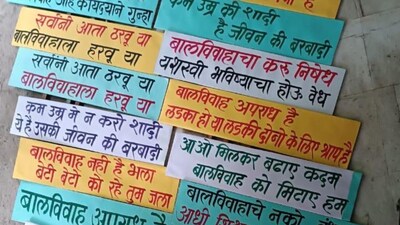 आहे कायद्याने गुन्हा
सर्वांनी आता ठरवू या
बालविवाहाला हरवू या
सर्वांनी आता ठरवू या
बालविवाहाला हरवू या
कम उम्र मे न करो शादी
ये है उसकी जीवन की बरबादी
बालविवाह नही है भला
बेटी बेटो को रहे तुम जला
बालविवाह अपराध है
कम उम्र की शादी
है जीवन की बरबादी
बालविवाहाचा करू निषेध
यशस्वी भविष्याचा होऊ वेध
बालविवाह अपराध है
लडका हो या लडकी दोनो के लिए शाप है
आओ मिलकर बढाए कदम
बालविवाह को मिटाए हम
बालविवाहाचे नको
आधी